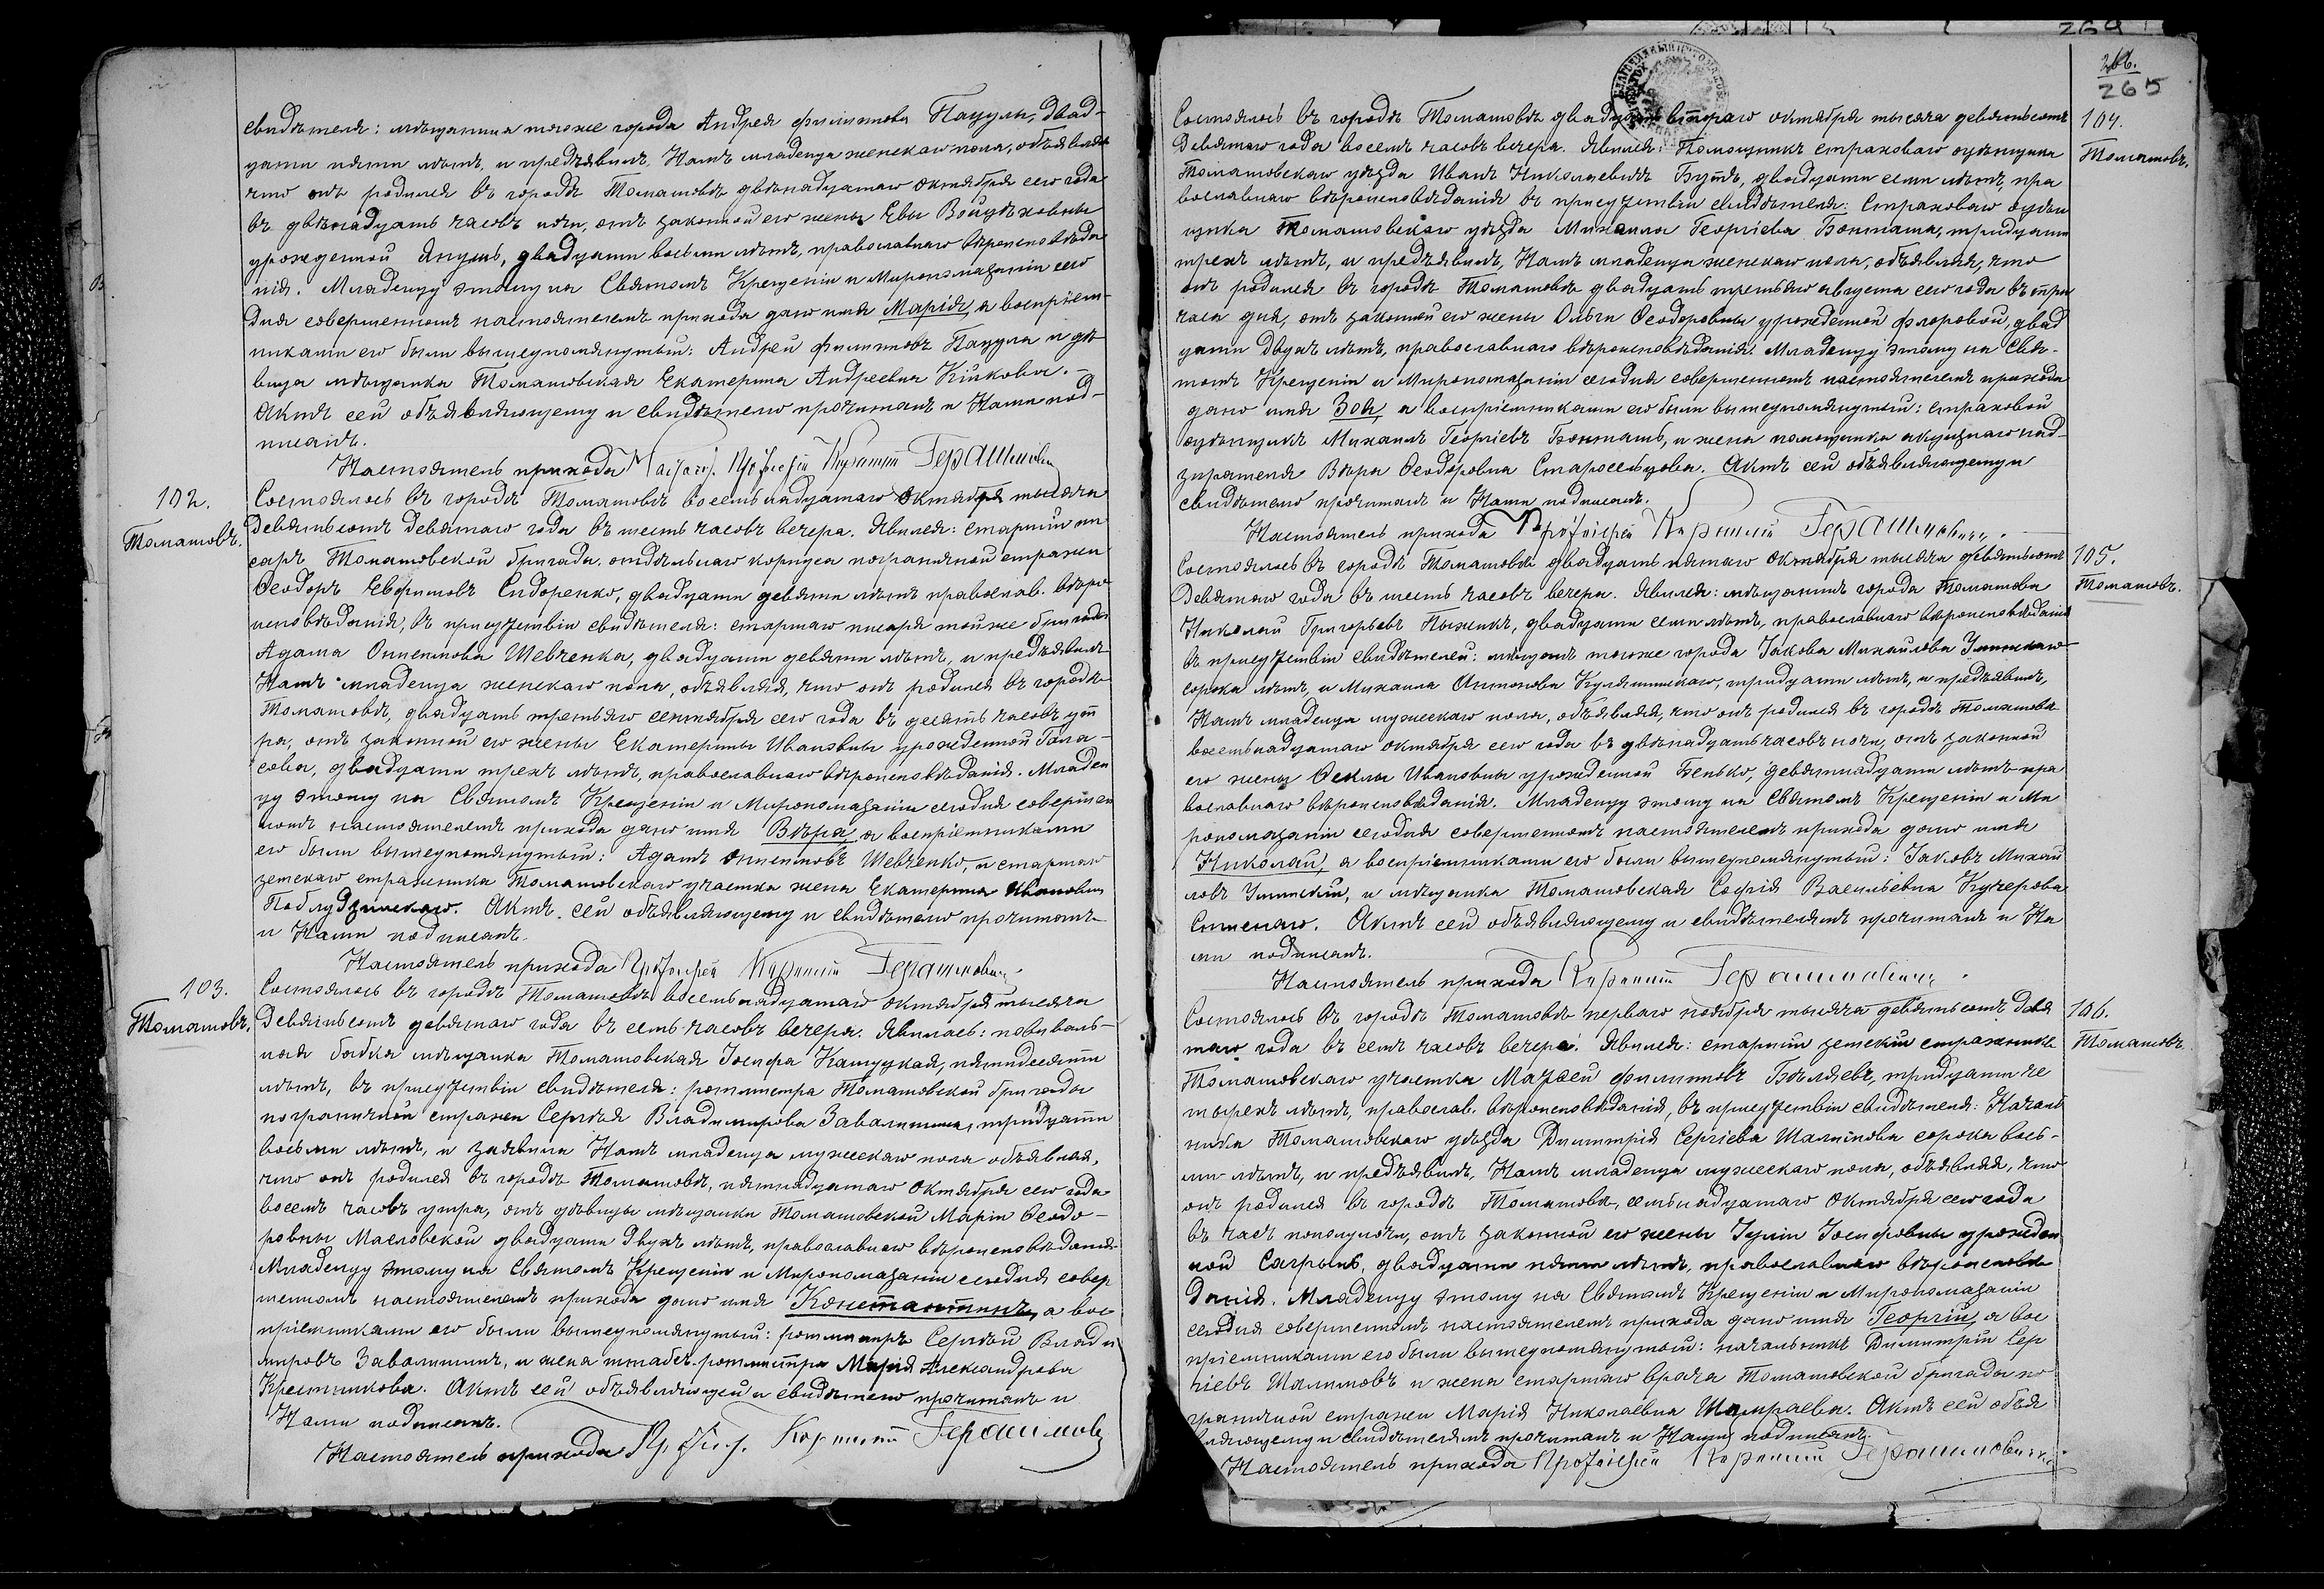 свидѣтеля: мѣщанина тогоже города Андрея Филиппова Пацулы, двад-
цати пяти лѣтъ, и предъявилъ Намъ младенца женскаго пола, объявляя
что онъ родился въ городѣ Томашовѣ двѣнадцатаго октября сего года
въ двѣнадцать часовъ ночи, отъ законной его жены Евы Войцѣховны
урожденной Янушъ, двадцати восьми лѣтъ, православнаго вѣроисповѣда-
нія. Младенцу этому на Святомъ Крещеніи и Миропомазаніи сего
дня совершенномъ настоятелемъ прихода дано имя Марія, а воспріем-
никами его были вышеупомянутый: Андрей Филипповъ Пацула и дѣ-
вица мѣщанка Томашовская Екатерина Андреевна Кійкова.-
Актъ сей объявляющему и свидѣтелю прочитанъ и Нами под-
писанъ.
Настоятель прихода Протоіерей Герашимовичъ
102.
Томашовъ.
Состоялось въ городѣ Томашовѣ восемьнадцатаго октября тысяча
девятьсотъ девятаго года въ шесть часовъ вечера. Явился: старшій пи
сарь Томашовской бригады отдѣльнаго корпуса пограничной стражи
Ѳеодоръ Евфимовъ Сидоренко, двадцати девяти лѣтъ православ. вѣро
исповѣданія, въ присутствіи свидѣтеля: старшаго писаря тойже бригады
Адама Шевченка, двадцати девяти лѣтъ, и предъявилъ
Намъ младенца женскаго пола, объявляя, что онъ родился въ городѣ
Томашовѣ, двадцать третьяго сентября сего года въ десять часовъ ут
ра, отъ законной его жены Екатерины Ивановны урожденной Гала-
сова, двадцати трехъ лѣтъ, православнаго вѣроисповѣданія. Младен
цу этому на Святомъ Крещеніи и Миропомазаніи сегодня совершен
номъ настоятелемъ прихода дано имя Вѣра, а воспріемниками
его были вышеупомянутый: Адамъ Шевченко, и старшаго
земскаго стражника Томашовскаго участка жена Екатерина Ивановна
Актъ сей объявляющему и свидѣтелю прочитанъ
и Нами подписанъ.
Настоятель прихода Протоіерей Герашимовичъ
103.
Томашовъ.
Состоялось въ городѣ Томашовѣ восемьнадцатаго октября тысяча
девятьсотъ девятаго года въ семь часовъ вечера. Явилась: повиваль-
ная бабка мѣщанка Томашовская Іосифа Кашуцкая, пятидесяти
лѣтъ, въ присутствіи свидѣтеля: ротмистра Томашовской бригады
пограничной стражи Сергѣя Владимирова Завалишина, тридцати
восьми лѣтъ, и заявила Намъ младенца мужескаго пола объявляя,
что онъ родился въ городѣ Томашовѣ, пятнадцатаго октября сего года
восемь часовъ утра, отъ дѣвицы мѣщанки Томашовской Маріи Ѳеодо-
ровны Масловской двадцати двухъ лѣтъ, православнаго вѣроисповѣданія
Младенцу этому на Святомъ Крещеніи и Миропомазаніи сегодня совер
шенномъ настоятелемъ прихода дано имя Константинъ, а вос
пріемниками его были вышеупомянутый: ротмистръ Сергѣй Влади
мировъ Завалишинъ, и жена штабсъ-ротмистра Марія Александрова
Крестникова. Актъ сей объявляющей и свидѣтелю прочитанъ и
Нами подписанъ.
Настоятель прихода Герашимовичъ
266.
265
104.
Томашовъ.
Состоялось въ городѣ Томашовѣ двадцать втораго октября тысяча девятьсотъ
девятаго года восемь часовъ вечера. Явился: Помощникъ страховаго оцѣнщика
Томашовскаго уѣзда Иванъ Николаевичъ двадцати семи лѣтъ, пра
вославнаго вѣроисповѣданія въ присутствіи свидѣтеля: Страховаго оцѣн
щика Томашовскаго уѣзда Михаила Георгіева Бокташа, тридцати
трехъ лѣтъ, и предъявилъ, Намъ младенца женскаго пола, объявляя, что
онъ родился въ городѣ Томашовѣ двадцать третьяго августа сего года въ три
часа дня, отъ законной его жены Ольги Ѳеодоровны урожденной Флоровой, двад
цати двухъ лѣтъ, православнаго вѣроисповѣданія. Младенцу этому на Свя-
томъ Крещеніи и Миропомазаніи сегодня совершенномъ настоятелемъ прихода
дано имя Зоя, а воспріемниками его были вышеупомянутый: страховой
оцѣнщикъ Михаилъ Георгіевъ Бокташъ, и жена помощника акцизнаго над-
зирателя Вѣра Ѳеодоровна Старосельцова. Актъ сей объявляющему и
свидѣтелю прочитанъ и Нами подписанъ.
Настоятель прихода Протоіерей Герашимовичъ.
105.
Томашовъ.
Состоялось въ городѣ Томашовѣ двадцать пятаго октября тысяча девятьсотъ
девятаго года въ шесть часовъ вечера. Явился: мѣщанинъ города Томашова
Николай Григорьевъ Пыжикъ, двадцати семи лѣтъ, православнаго вѣроисповѣданія
въ присутствіи свидѣтелей: мѣщанъ тогоже города Іакова Михаилова Улинскаго
сорока лѣтъ, и Михаила Антонова Куляшинскаго, тридцати лѣтъ, и предъявилъ,
Намъ младенца мужескаго пола, объявляя, что онъ родился въ городѣ Томашовѣ
восемьнадцатаго октября сего года въ двѣнадцать часовъ ночи, отъ законной
его жены Ѳеклы Ивановны урожденной Бенько, девятнадцати лѣтъ пра
вославнаго вѣроисповѣданія. Младенцу этому на Святомъ Крещеніи и Ми
ропомазаніи сегодня совершенномъ настоятелемъ прихода дано имя
Николай, а воспріемниками его были вышеупомянутый: Іаковъ Михаи
ловъ Улинскій, и мѣщанка Томашовская Софія Васильевна Кучерова
Актъ сей объявляющему и свидѣтелямъ прочитанъ и На
ми подписанъ.
Настоятель прихода Герашимовичъ.
106.
Томашовъ.
Состоялось въ городѣ Томашовѣ перваго ноября тысяча девятьсотъ девя
таго года въ семь часовъ вечера. Явился: старшій земскій стражникъ
Томашовскаго участка Матѳей Филипповъ Бѣляевъ, тридцати че
тырехъ лѣтъ, православ. вѣроисповѣданія, въ присутствіи свидѣтеля: Началь
ника Томашовскаго уѣзда Димитрія Сергіева Шалимова сорока вось-
ми лѣтъ, и предъявилъ, Намъ младенца мужескаго пола, объявляя, что
онъ родился въ городѣ Томашовѣ, семьнадцатаго октября сего года
въ часъ пополуночи, отъ законной его жены Іуліи Іосифовны урожден
ной Сагрынь, двадцати пяти лѣтъ, православнаго вѣроисповѣ
данія. Младенцу этому на Святомъ Крещеніи и Миропомазаніи
сегодня совершенномъ настоятелемъ прихода дано имя Георгій, а вос
пріемниками его были вышеупомянутый: начальникъ Димитрій Сер
гіевъ Шалимовъ и жена старшаго врача Томашовской бригады по
граничной стражи Марія Николаевна Шамраева. Актъ сей объя
вляющему и свидѣтелямъ прочитанъ и Нами подписанъ.
Настоятель прихода Протоіерей Герашимовичъ